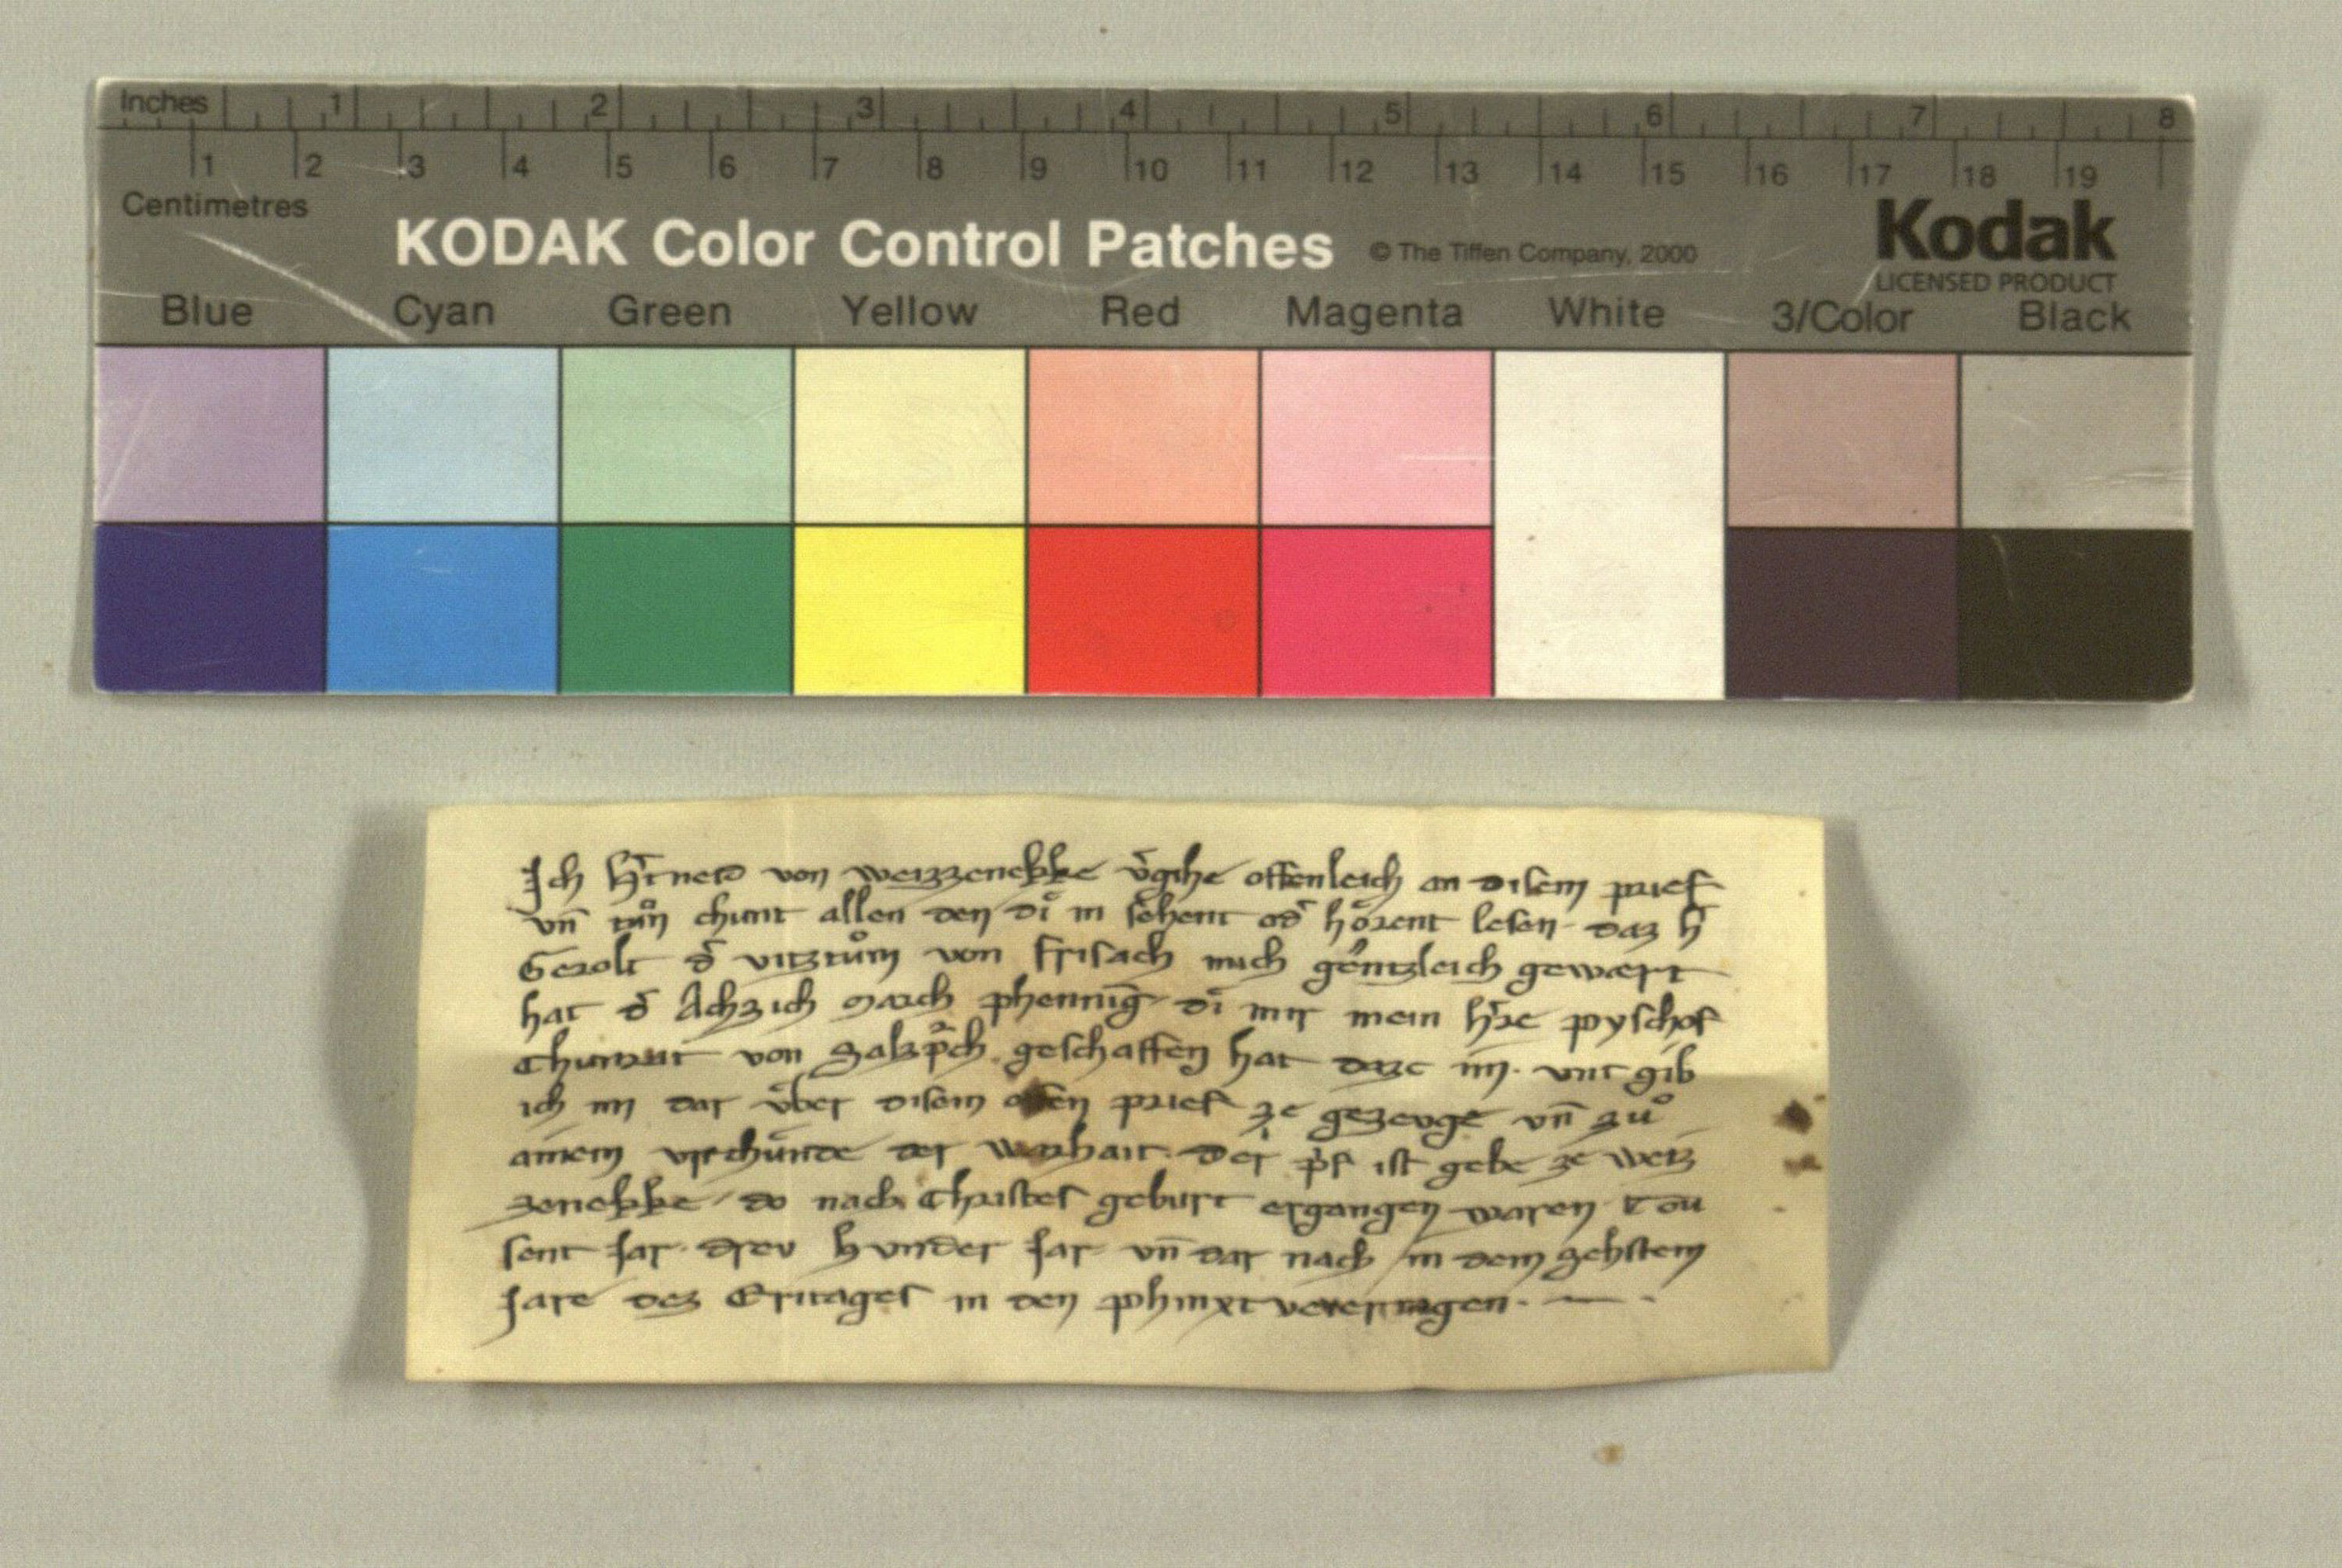 Inches 1 2 3 4 5 6 7 8
1 2 3 4 5 6 7 8 9 10 11 12 13 14 15 16 17 18 19
Centimetres
KODAK Color Control Patches © The Tiffen Company, 2000 Kodak
LICENSED PRODUCT
Blue Cyan Green Yellow Red Magenta White 3/Color Black
Ich h̄tneid von weizzenekke v̄gihe offenleich an disem prief
vn̄ tuͦn chunt allen den di in sehent od̄ hoͤrent lesen daz h̄
Gerolt d̄ vitztuͦm von frisach mich gentzleich gewært
hat d̄ Achzich march phennīg di mir mein h̄re pyschof
Chunrat von Salzp̄ch geschaffen hat datz im. vnt gib
ich im dar vͤber disem offen prief ze gezeuge vn̄ zuͦ
ainem vrchuͤnde der warhait. der p̄f ist gebē ze weiz
zenekke do nach Christes geburt ergangen waren tou
sent Jar drev hvnder Jar vn̄ dar nach in dem zehstem
Jare dez Eritages in den phinxtveiertagen.